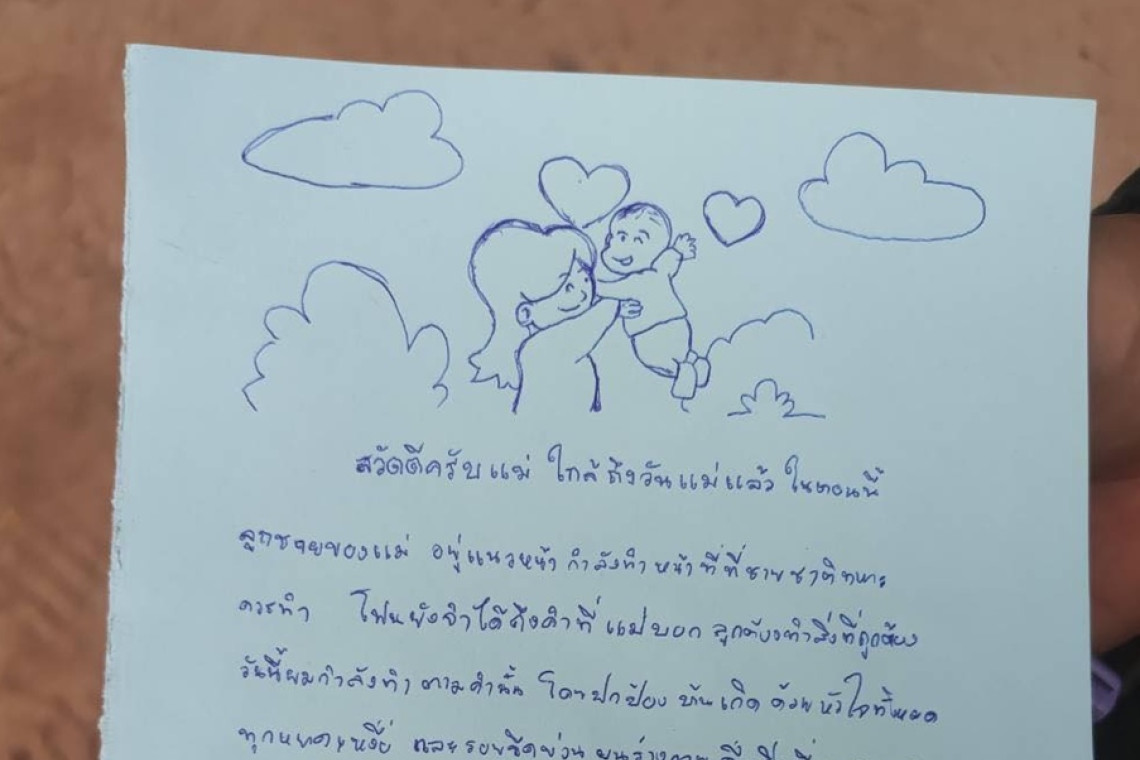 สวัดดีครับแม่ ใกล้ถึงวันแม่แล้ว ในตอนนี้
ลูกชายของแม่ อยู่แนวหน้า กำลังทำหน้าที่ที่ชายชาติทหาร
ควรทำ โฟนยังจำได้ถึงคำที่แม่บอก ลูกต้องทำสิ่งที่ถูกต้อง
วันนี้ผมกำลังทำตามคำนั้น โดยปกป้องบ้านเกิดด้วยหัวใจทั้งหมด
ทุกหยาดเหงื่อ และรอยขีดข่วน